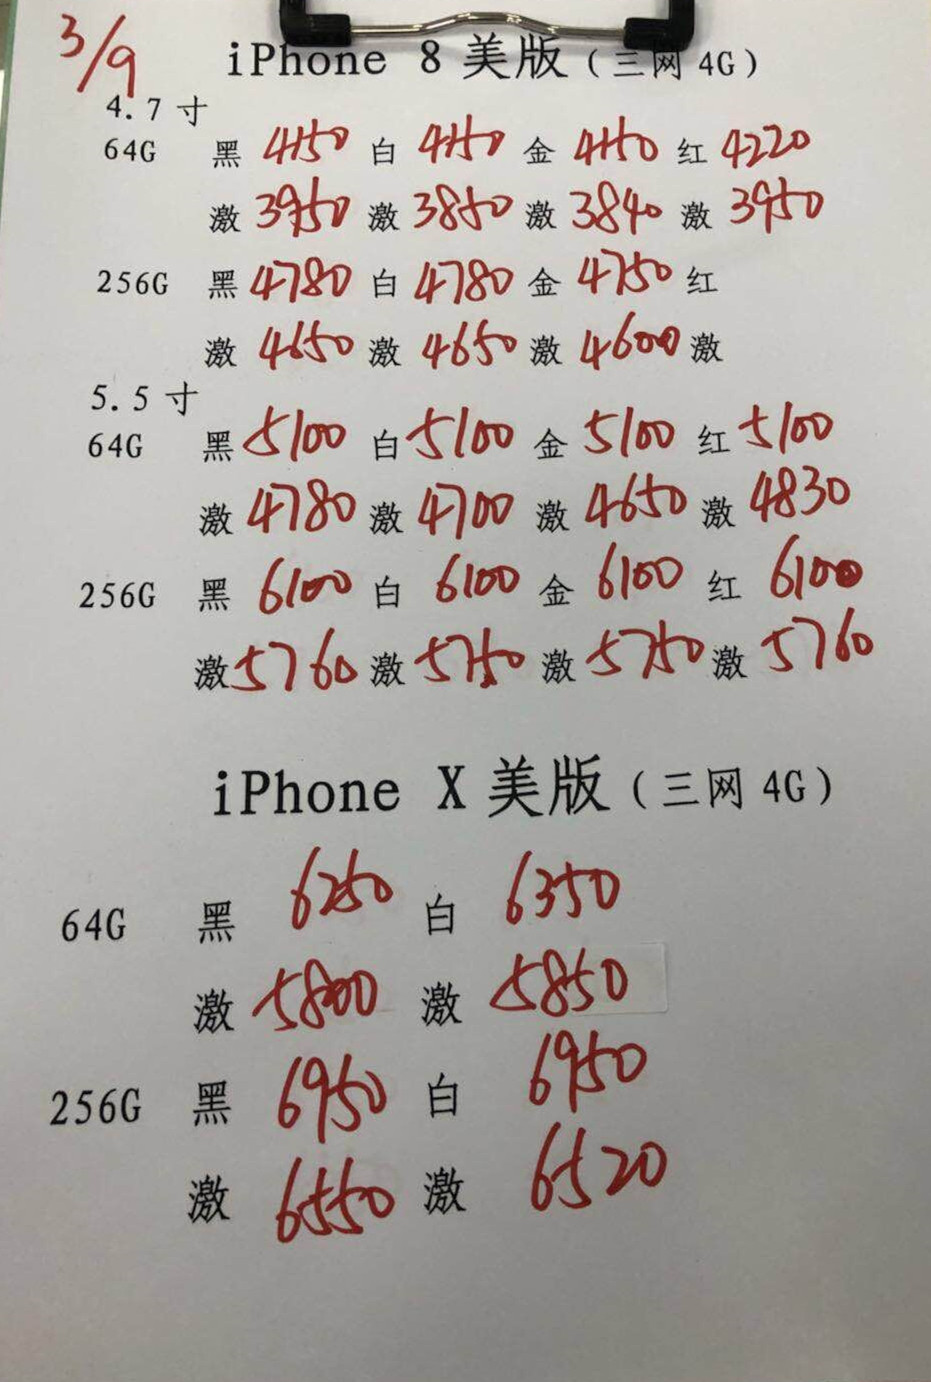 3/9
iPhone 8 美版（三网 4G）
4.7 寸
64G 黑 4150 白 4150 金 4150 红 4220
激 3950 激 3850 激 3840 激 3950
256G 黑 4780 白 4780 金 4750 红
激 4650 激 4650 激 4600 激
5.5 寸
64G 黑 5100 白 5100 金 5100 红 5100
激 4780 激 4700 激 4650 激 4830
256G 黑 6100 白 6100 金 6100 红 6100
激 5760 激 5750 激 5750 激 5760
iPhone X 美版（三网 4G）
64G 黑 6250 白 6350
激 5800 激 5850
256G 黑 6950 白 6950
激 6550 激 6520